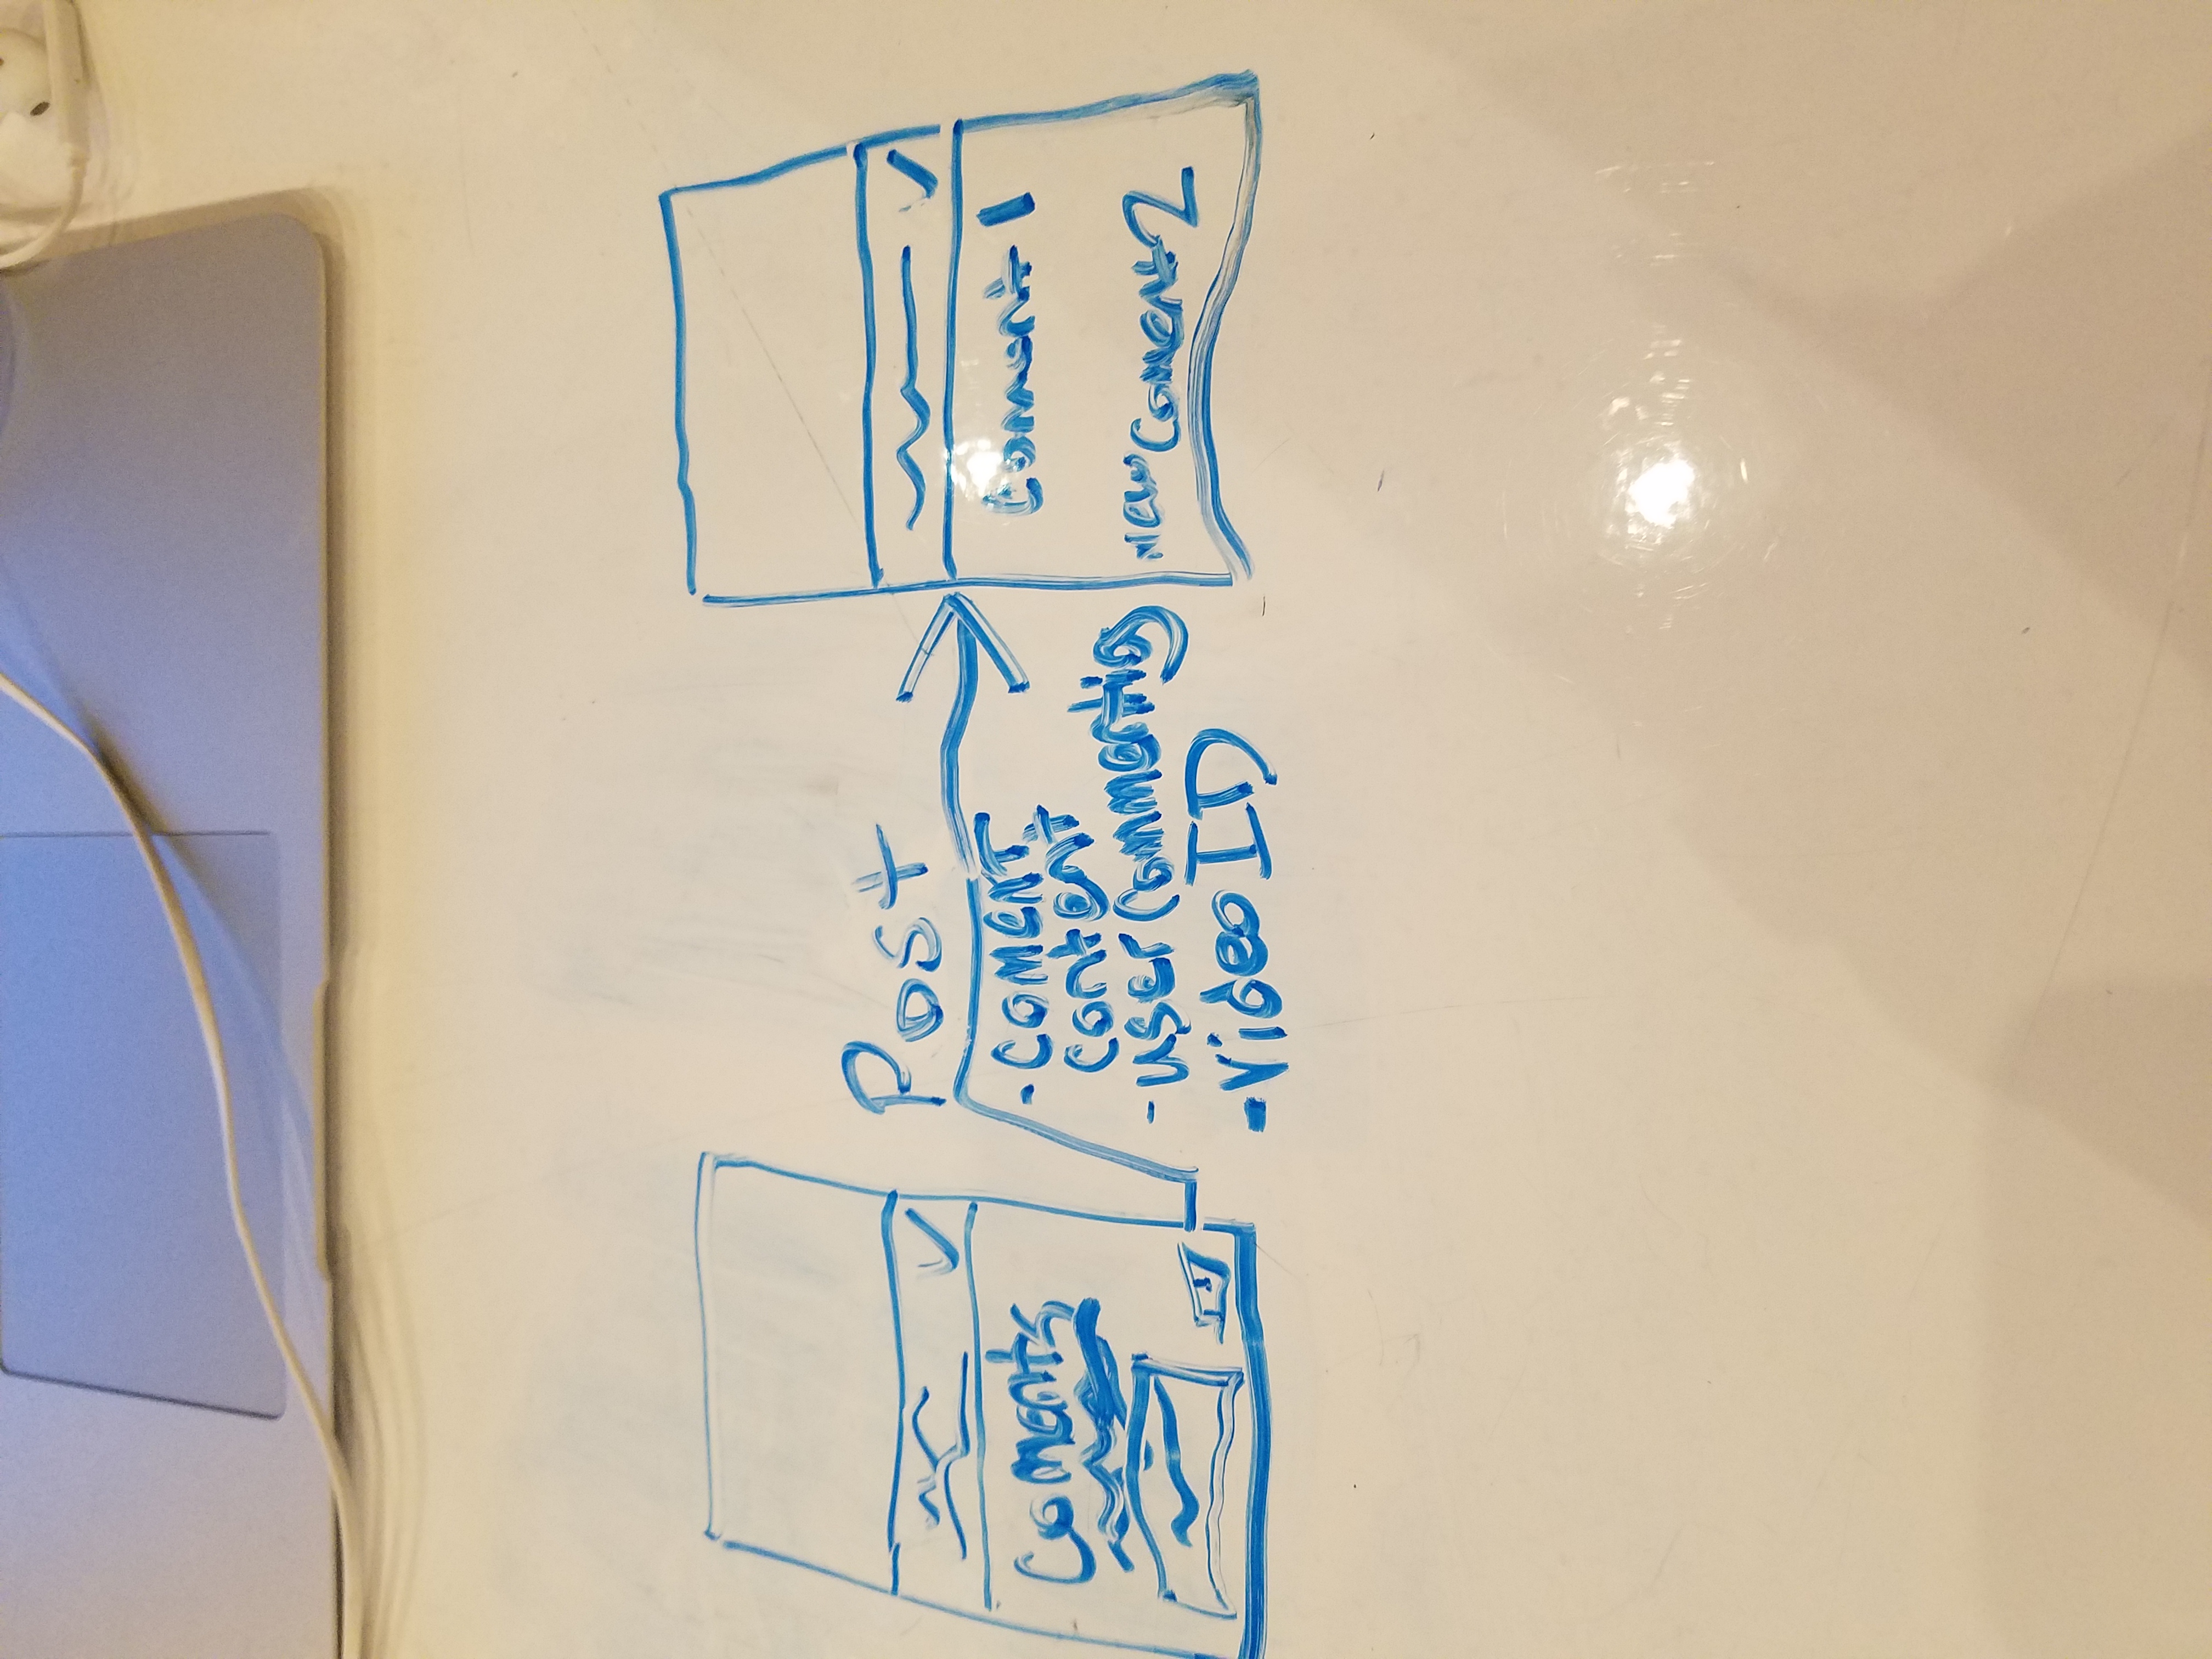 Coments
Post
- Coment
Content
- user Commenting
- Video ID
Comment 1
New Coment 2